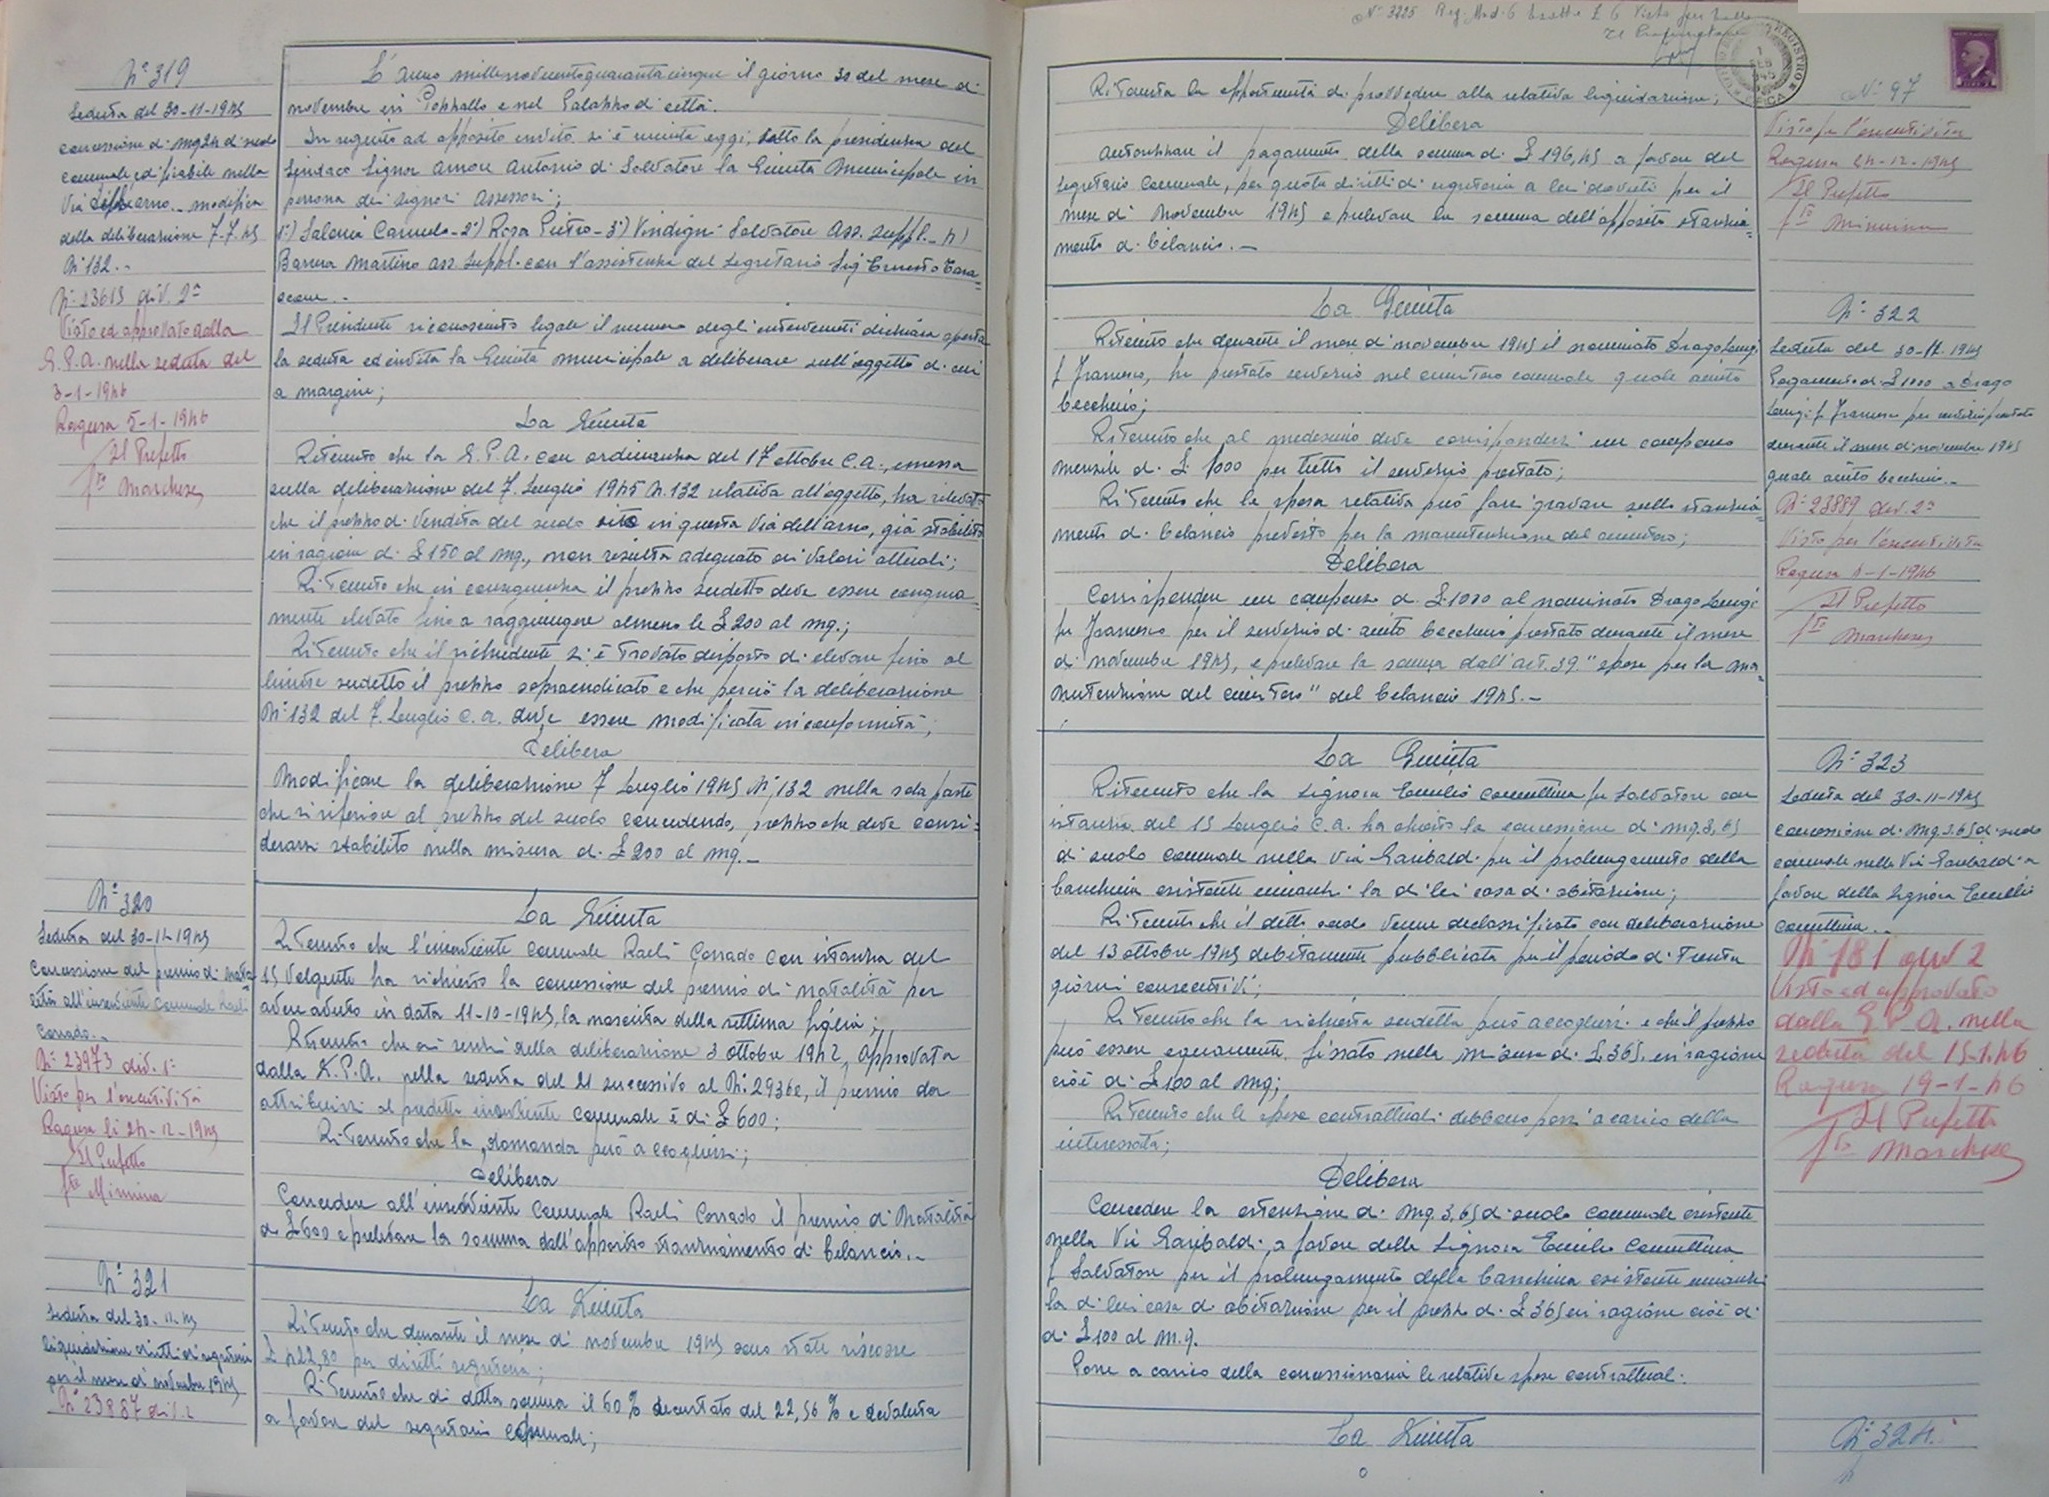 N° 319
Seduta del 30-11-1945
concessione di mq 24 di suolo
comunale edificabile nella
Via dell'arno - modifica
della deliberazione 7-7-45
N° 132..
N° 23613 div. 2ª
Visto ed approvato dalla
G.P.A. nella seduta del
3-1-1946
Ragusa 5-1-1946
Il Prefetto
fto Marchese
L'anno millenovecentoquarantacinque il giorno 30 del mese di
novembre in Pozzallo e nel Palazzo di città.
In seguito ad apposito invito si è riunita oggi, sotto la presidenza del
Sindaco Signor Amore Antonio di Salvatore la Giunta Municipale in
persona dei signori Assessori;
1°) Salonia Carmelo - 2°) Rosa Pietro - 3°) Vindigni Salvatore Ass. Suppl. - 4)
Barrera Martino ass. Suppl. con l'assistenza del Segretario Sig. Ernesto

Il Presidente riconosciuto legale il numero degli intervenuti dichiara aperta
la seduta ed invita la Giunta municipale a deliberare sull'oggetto di cui
a margine;
La Giunta
Ritenuto che la G.P.A. con ordinanza del 17 ottobre c.a., emessa
sulla deliberazione del 7 Luglio 1945 N. 132 relativa all'oggetto, ha rilevato
che il prezzo di vendita del suolo sito in questa Via dell'arno, già stabilito
in ragione di £ 150 al mq., non risulta adeguato ai valori attuali;
Ritenuto che in conseguenza il prezzo sudetto deve essere congrua=
mente elevato fino a raggiungere almeno le £ 200 al mq.;
Ritenuto che il richiedente si è trovato disposto di elevare fino al
limite sudetto il prezzo sopraindicato e che perciò la deliberazione
N° 132 del 7 Luglio c.a. deve essere modificata in conformità;
Delibera
Modificare la deliberazione 7 Luglio 1945 N° 132 nella sola parte
che si riferisce al prezzo del suolo concedendo, prezzo che deve consi=
derarsi stabilito nella misura di £ 200 al mq.-
N° 320
Seduta del 30-11-1945
Concessione del premio di nata
lità all'inserviente comunale Raeli
Corrado..
N° 23973 div. 1ª
Visto per l'esecutività
Ragusa li 24-12-1945
Il Prefetto
fto Minnina
La Giunta
Ritenuto che l'inserviente comunale Raeli Corrado con istanza del
15 volgente ha richiesto la concessione del premio di natalità per
avere avuto in data 11-10-1945, la nascita della settima figlia;
Ritenuto che ai sensi della deliberazione 3 ottobre 1942, approvata
dalla G.P.A. nella seduta del 21 successivo al N° 29362, il premio da
attribuirsi al predetto inserviente comunale è di £ 600;
Ritenuto che la domanda può accogliersi;
Delibera
Concedere all'inserviente comunale Raeli Corrado il premio di Natalità
di £ 600 e prelevare la somma dall'apposito stanziamento di bilancio..
N° 321
Seduta del 30-11-45
liquidazione diritti di segreteria
per il mese di novembre 1945
N° 23887 div. 2
La Giunta
Ritenuto che durante il mese di novembre 1945 sono state riscosse
£ 422,80 per diritti segreteria;
Ritenuto che di detta somma il 60% decurtato del 22,56% è devoluta
a favore del segretario comunale;
N° 3225 Reg. Mod. 6 Esatte £ 6 Visto per bollo
Il Procuratore
N° 97
Ritenuta la opportunità di provvedere alla relativa liquidazione;
Delibera
Autorizzare il pagamento della somma di £ 196,45 a favore del
segretario comunale, per quota diritti di segreteria a lui dovuti per il
mese di novembre 1945 e prelevare la somma dall'apposito stanzia=
mento di bilancio.-
Visto per l'esecutività
Ragusa 24-12-1945
Il Prefetto
fto Minnina
La Giunta
Ritenuto che durante il mese di novembre 1945 il nominato Drago Luigi
f Francesco, ha prestato servizio nel cimitero comunale quale aiuto
becchino;
Ritenuto che al medesimo deve corrispondersi un compenso
mensile di £ 1000 per tutto il servizio prestato;
Ritenuto che la spesa relativa può farsi gravare sullo stanzia=
mento di bilancio previsto per la manutenzione del cimitero;
Delibera
Corrispondere un compenso di £ 1000 al nominato Drago Luigi
fu Francesco per il servizio di aiuto becchino prestato durante il mese
di novembre 1945, e prelevare la somma dall'art. 39 "spese per la ma=
nutenzione del cimitero" del bilancio 1945.-
N° 322
Seduta del 30-11-1945
Pagamento di £ 1000 a Drago
Luigi f Francesco per servizio prestato
durante il mese di novembre 1945
quale aiuto becchino..
N° 23889 div. 2ª
Visto per l'esecutività
Ragusa 1-1-1946
Il Prefetto
fto Marchese
La Giunta
Ritenuto che la Signora Emilio Carmelina fu Salvatore con
istanza del 15 Luglio c.a. ha chiesto la concessione di mq. 3,65
di suolo comunale nella Via Garibaldi per il prolungamento della
banchina esistente innanzi la di lei casa di abitazione;
Ritenuto che il detto suolo venne declassificato con deliberazione
del 13 ottobre 1945 debitamente pubblicata per il periodo di trenta
giorni consecutivi;
Ritenuto che la richiesta sudetta può accogliersi e che il prezzo
può essere equamente fissato nella misura di £ 365, in ragione
cioè di £ 100 al mq;
Ritenuto che le spese contrattuali debbono porsi a carico della
interessata;
Delibera
Concedere la estenzione di mq. 3,65 di suolo comunale esistente
nella Via Garibaldi, a favore della Signora Emilio Carmelina
f Salvatore per il prolungamento della banchina esistente innanzi
la di lei casa di abitazione per il prezzo di £ 365 in ragione cioè di
di £ 100 al m.q.
Porre a carico della concessionaria le relative spese contrattuali.
N° 323
Seduta del 30-11-1945
concessione di mq. 3.65 di suolo
comunale nella Via Garibaldi a
favore della Signora Emilio
Carmelina..
N° 181 div 2
Visto ed approvato
dalla G.P.A. nella
seduta del 15-1-46
Ragusa 19-1-46
Il Prefetto
fto Marchese
La Giunta
N° 324.